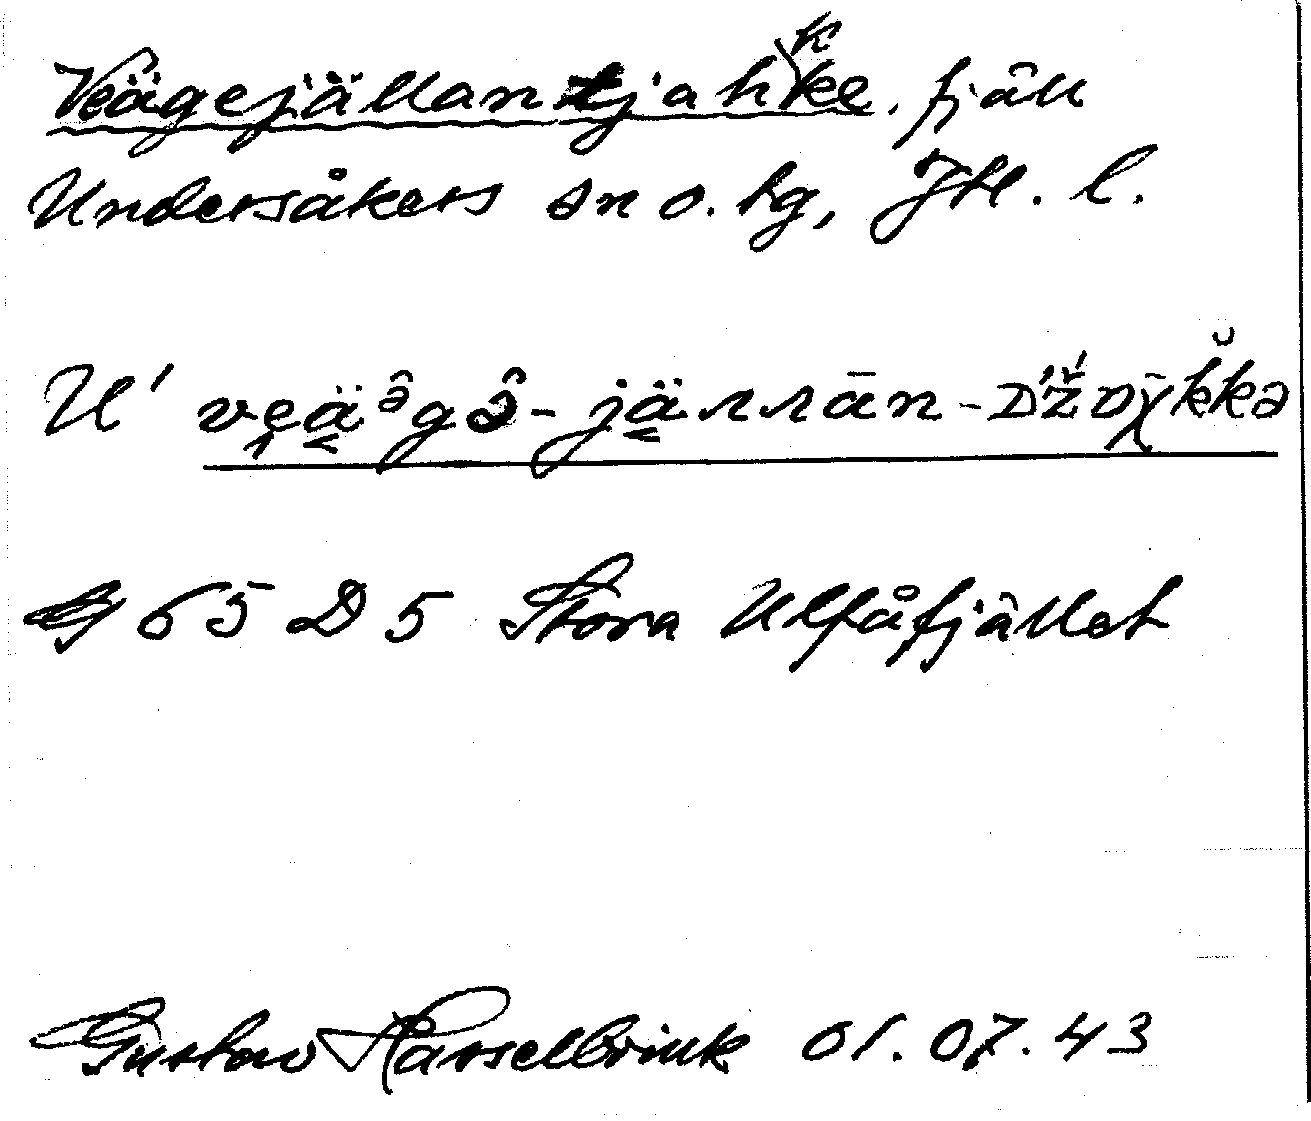 Veägejällantjahkke. fjäll
Undersåkers sn o. tg, Jtl. l.
U' ve̹ä̱ᵊgə̑-jä̱ʌʌān-D'ž́ɒχ̄k̆kə
G 65 D 5 Stora Ulfåfjället
Gustav Hasselbrink 01.07.43